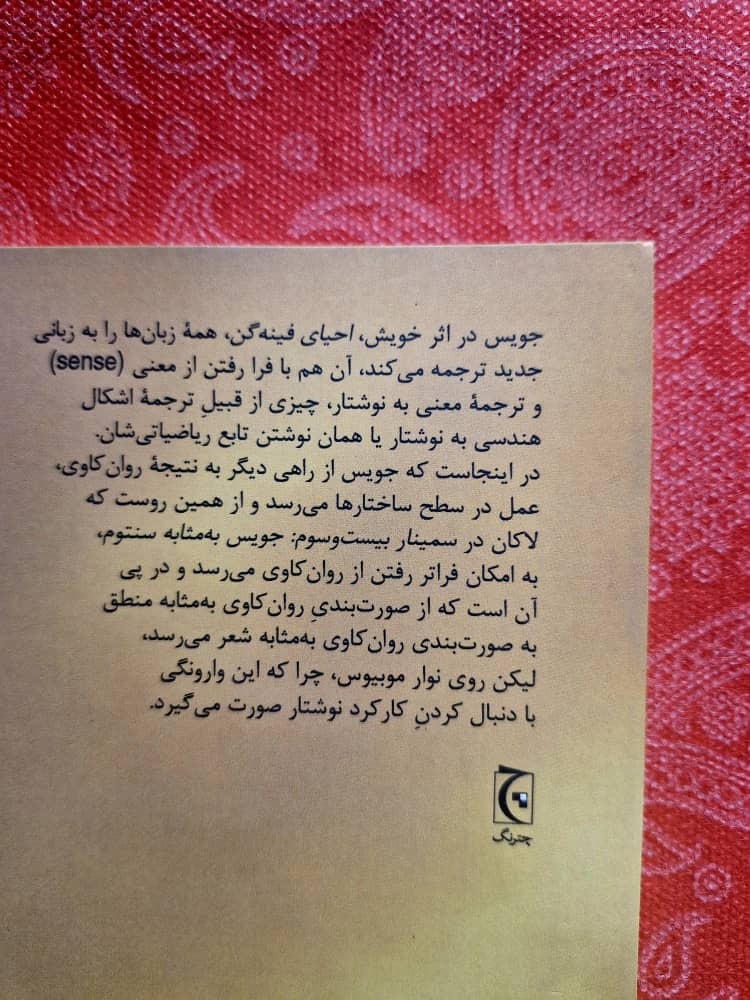 جویس در اثر خویش، احیای فینه‌گن، همهٔ زبان‌ها را به زبانی
جدید ترجمه می‌کند، آن هم با فرا رفتن از معنی (sense)
و ترجمهٔ معنی به نوشتار، چیزی از قبیلِ ترجمهٔ اشکال
هندسی به نوشتار یا همان نوشتن تابع ریاضیاتی‌شان.
در اینجاست که جویس از راهی دیگر به نتیجهٔ روان‌کاوی،
عمل در سطح ساختارها می‌رسد و از همین روست که
لاکان در سمینار بیست‌وسوم: جویس به‌مثابه سنتوم،
به امکان فراتر رفتن از روان‌کاوی می‌رسد و در پی
آن است که از صورت‌بندیِ روان‌کاوی به‌مثابه منطق
به صورت‌بندی روان‌کاوی به‌مثابه شعر می‌رسد،
لیکن روی نوار موبیوس، چرا که این وارونگی
با دنبال کردنِ کارکرد نوشتار صورت می‌گیرد.
چترنگ